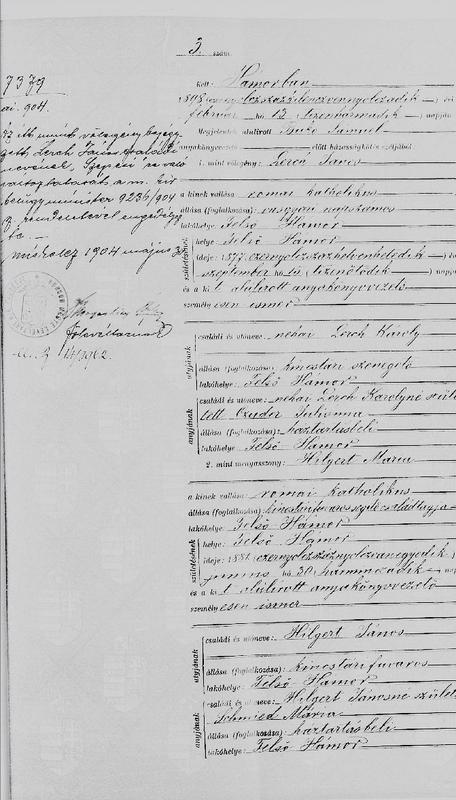 3. szám.
7379
ai. 904.
Az itt mint vőlegény bejegy
zett Lerch János családi
nevének, Szepesi re való
változtatását a m. kir
belügyminister 9236/904
sz. rendeletével engedélyez
te. —
Miskolcz 1904 május 30
főlevéltárnok
14/1962.
Kelt: Hámorban
1898 ezernyolczszázkilenczvennyolczadik évi
február hó 13 (tizenharmadik) napján
Megjelentek alulírott Samuel
anyakönyvvezető előtt házasságkötés czéljából
1. mint vőlegény: Lerch János
a kinek vallása: romai katholikus
állása (foglalkozása): napszamos
lakóhelye: Felső Hámor
helye: Felső Hámor
ideje: 1877 ezernyolczszázhetvenhetedik
szeptember hó 15 (tizenötödik) napja
és a kit alulírott anyakönyvvezető
személyesen ismer
születésének
családi és utóneve: néhai Lerch Károly
állása (foglalkozása): kincstári szenegető
lakóhelye: Felső Hámor
atyjának
családi és utóneve: néhai Lerch Karolyné szüle
tett Czuder Julianna
állása (foglalkozása): háztartásbeli
lakóhelye: Felső Hámor
anyjának
2. mint menyasszony: Hilgert Maria
a kinek vallása: romai katholikus
állása (foglalkozása): családtagja
lakóhelye: Felső Hámor
helye: Felső Hámor
ideje: 1881 ezernyolczszáznyolczvanegyedik
junius hó 30 (harminczadik) nap
és a kit alulírott anyakönyvvezető
személyesen ismer
születésének
családi és utóneve: Hilgert János
állása (foglalkozása): kincstári fuvaros
lakóhelye: Felső Hámor
atyjának
családi és utóneve: Hilgert Jánosné szület
Schmied Mária
állása (foglalkozása): háztartásbeli
lakóhelye: Felső Hámor
anyjának